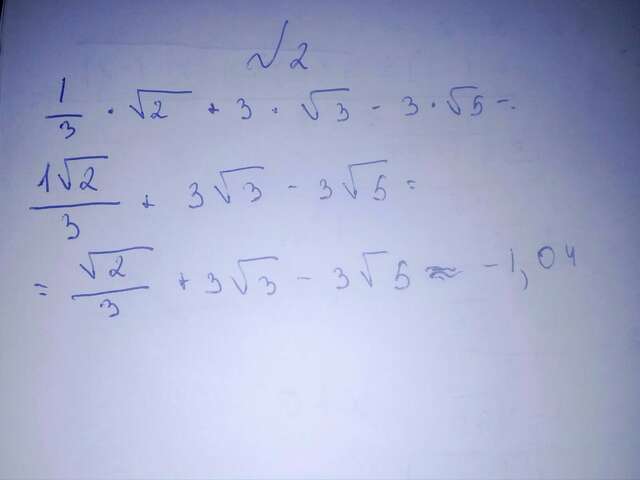 √2
1/3 · √2 + 3 · √3 - 3 · √5 =
1√2/3 + 3√3 - 3√5 =
= √2/3 + 3√3 - 3√5 ≈ -1,04